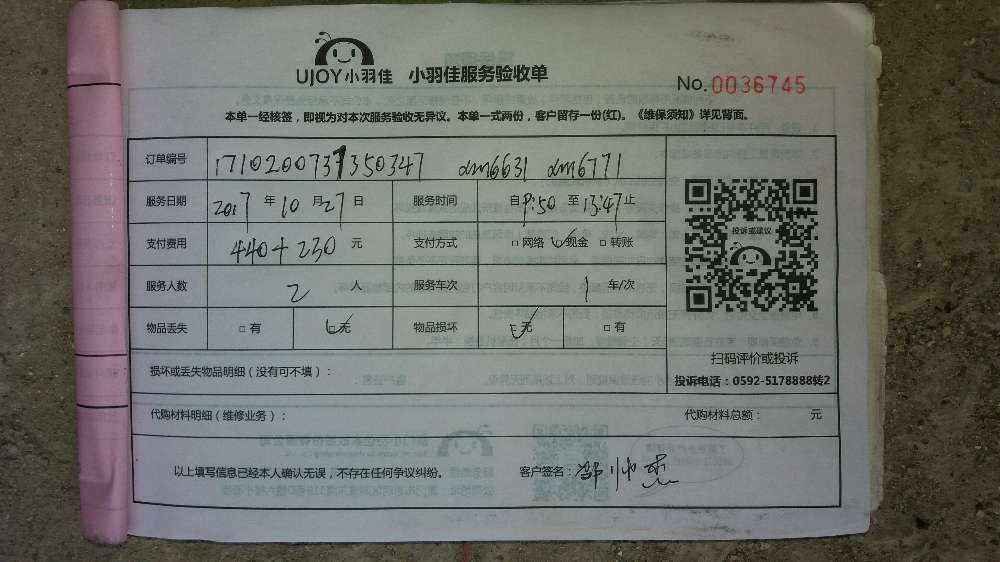 UJOY小羽佳 小羽佳服务验收单
No. 0036745
本单一经核签，即视为对本次服务验收无异议。本单一式两份，客户留存一份(红)。《维保须知》详见背面。
订单编号 171020073350347 dm6631 dm6771
服务日期 2017 年 10 月 27 日 服务时间 自 9:50 至 13:47 止
支付费用 440+230 元 支付方式 □网络 ☑现金 □转账
服务人数 2 人 服务车次 1 车/次
物品丢失 □有 ☑无 物品损坏 ☑无 □有
投诉或建议
扫码评价或投诉
投诉电话：0592-5178888转2
损坏或丢失物品明细（没有可不填）：
代购材料明细（维修业务）： 代购材料总额： 元
以上填写信息已经本人确认无误，不存在任何争议纠纷。 客户签名：邹帅杰